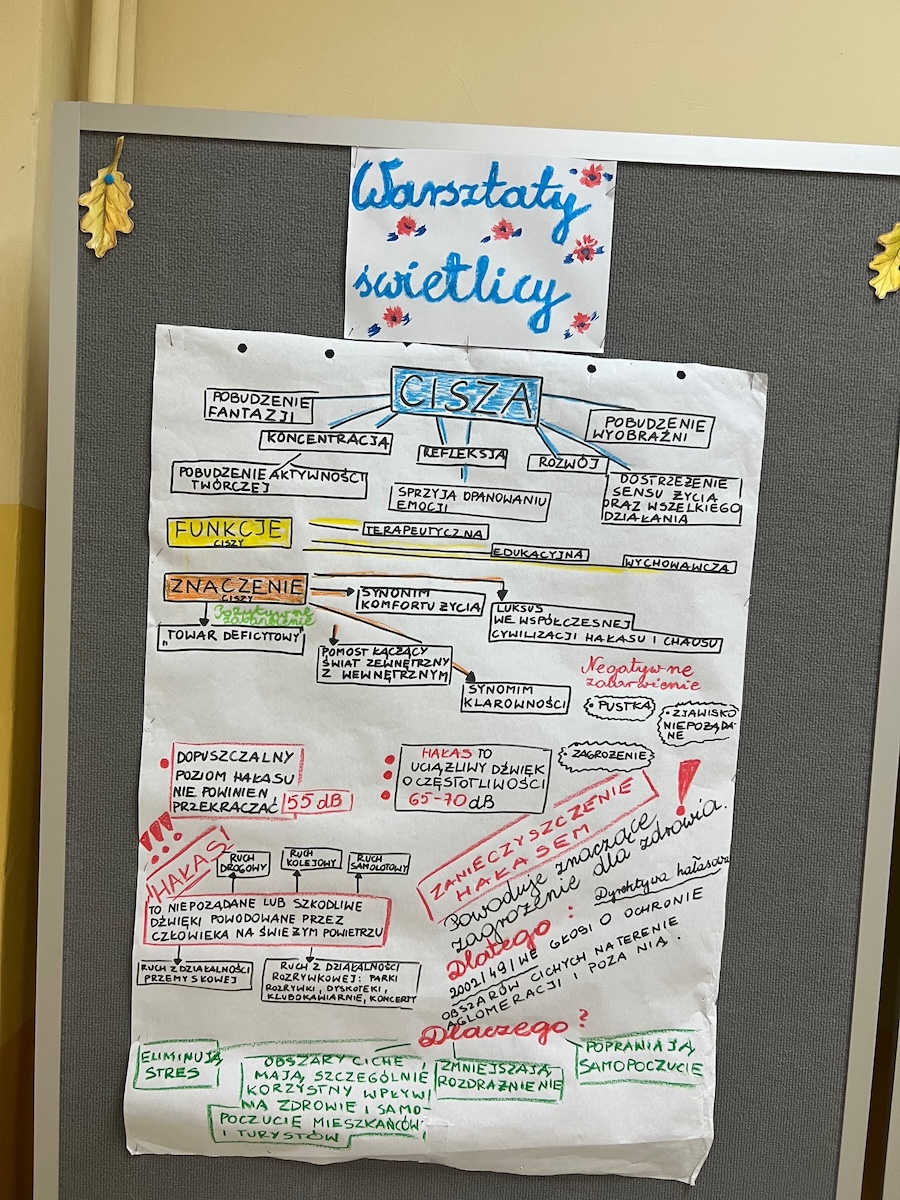 Warsztaty
świetlicy
CISZA
POBUDZENIE
FANTAZJI
KONCENTRACJA
POBUDZENIE AKTYWNOŚCI
TWÓRCZEJ
REFLEKSJA
SPRZYJA OPANOWANIU
EMOCJI
ROZWÓJ
POBUDZENIE
WYOBRAŹNI
DOSTRZEŻENIE
SENSU ŻYCIA
ORAZ WSZELKIEGO
DZIAŁANIA
FUNKCJE
CISZY
TERAPEUTYCZNA
EDUKACYJNA
WYCHOWAWCZA
ZNACZENIE
CISZY
Pozytywne
zabarwienie
„TOWAR DEFICYTOWY"
SYNONIM
KOMFORTU ŻYCIA
LUKSUS
WE WSPÓŁCZESNEJ
CYWILIZACJI HAŁASU I CHAOSU
POMOST ŁĄCZĄCY
ŚWIAT ZEWNĘTRZNY
Z WEWNĘTRZNYM
SYNOMIM
KLAROWNOŚCI
Negatywne
zabarwienie
• PUSTKA
• ZJAWISKO
NIEPOŻĄDA-
NE
• ZAGROŻENIE
• DOPUSZCZALNY
POZIOM HAŁASU
NIE POWINIEN
PRZEKRACZAĆ 55 dB
HAŁAS TO
UCIĄŻLIWY DŹWIĘK
O CZĘSTOTLIWOŚCI
65-70 dB
!!!
HAŁAS!
RUCH
DROGOWY
RUCH
KOLEJOWY
RUCH
SAMOLOTOWY
TO NIEPOŻĄDANE LUB SZKODLIWE
DŹWIĘKI POWODOWANE PRZEZ
CZŁOWIEKA NA ŚWIEŻYM POWIETRZU
RUCH Z DZIAŁALNOŚCI
PRZEMYSŁOWEJ
RUCH Z DZIAŁALNOŚCI
ROZRYWKOWEJ: PARKI
ROZRYWKI, DYSKOTEKI,
KLUBOKAWIARNIE, KONCERTY
ZANIECZYSZCZENIE
HAŁASEM
!
Powoduje znaczące
zagrożenie dla zdrowia.
Dlatego: Dyrektywa hałasowa
2002/49/WE GŁOSI O OCHRONIE
OBSZARÓW CICHYCH NA TERENIE
AGLOMERACJI I POZA NIĄ.
Dlaczego?
ELIMINUJĄ
STRES
OBSZARY CICHE
MAJĄ SZCZEGÓLNIE
KORZYSTNY WPŁYW
NA ZDROWIE I SAMO-
POCZUCIE MIESZKAŃCÓW
I TURYSTÓW
ZMNIEJSZAJĄ
ROZDRAŻNIENIE
POPRAWIAJĄ
SAMOPOCZUCIE